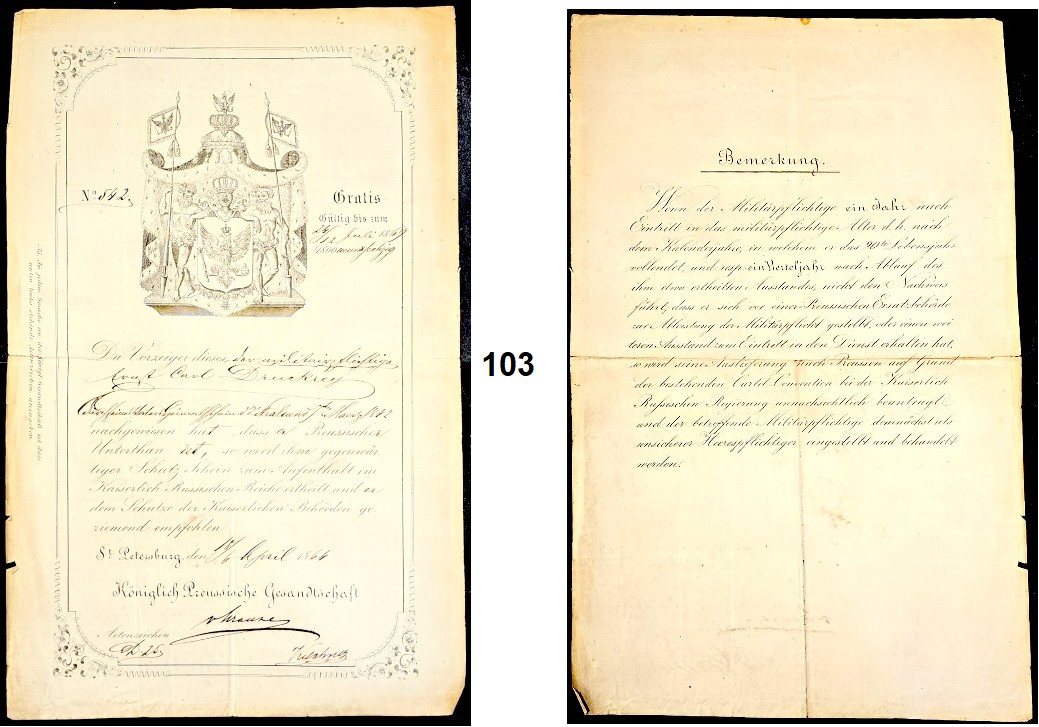 No 542
Gratis
Gültig bis zum
Juli 18
Da Vorzeiger dieses, der militairpflichtige
Ernst Carl Druckrey
nachgewiesen hat, dass er Preussischer
Unterthan ist, so wird ihm gegenwär
tiger Schutz Schein zum Aufenthalt im
Kaiserlich Russischen Reiche ertheilt und er
dem Schutze der Kaiserlichen Behörden ge
ziemend empfohlen.
St Petersburg, den April 1864
Königlich Preussische Gesandtschaft
Actenzeichen
103
Bemerkung.
Wenn der Militärpflichtige ein Jahr nach
Eintritt in das militärpflichtige Alter d.h. nach
dem Kalenderjahre, in welchem er das 20te Lebensjahr
vollendet, und resp. ein Vierteljahr nach Ablauf des
ihm etwa ertheilten Ausstandes, nicht den Nachweis
führt, dass er sich vor einer Preussischen Ersatzbehörde
zur Ableistung der Militärpflicht gestellt, oder einen wei
teren Ausstand zum Eintritt in den Dienst erhalten hat,
so wird seine Auslieferung nach Preussen auf Grund
der bestehenden Cartel-Convention bei der Kaiserlich
Russischen Regierung unnachsichtlich beantragt
und der betreffende Militärpflichtige demnächst als
unsicherer Heerespflichtiger eingestellt und behandelt
werden.